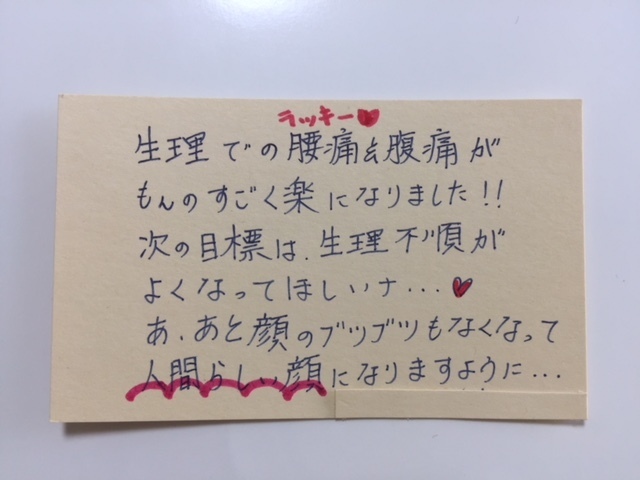 ラッキー♥
生理での腰痛&腹痛が
もんのすごく楽になりました!!
次の目標は、生理不順が
よくなってほしいナ...♥
あ、あと顔のブツブツもなくなって
人間らしい顔になりますように...